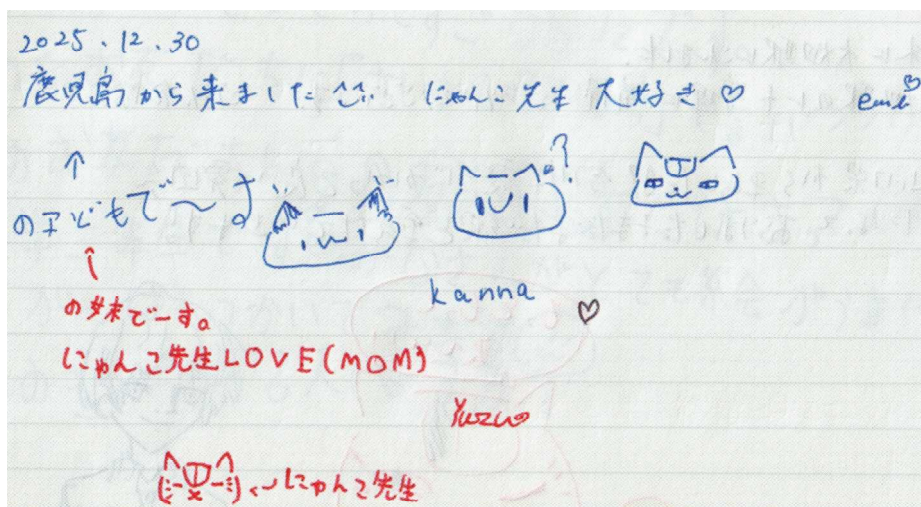 2025.12.30
鹿児島から来ました ^^ にゃんこ先生 大好き ♡ emi♡
↑
の子どもで〜す
?
kanna ♡
↑
の妹でーす。
にゃんこ先生LOVE(MOM)
Yuzu
←にゃんこ先生